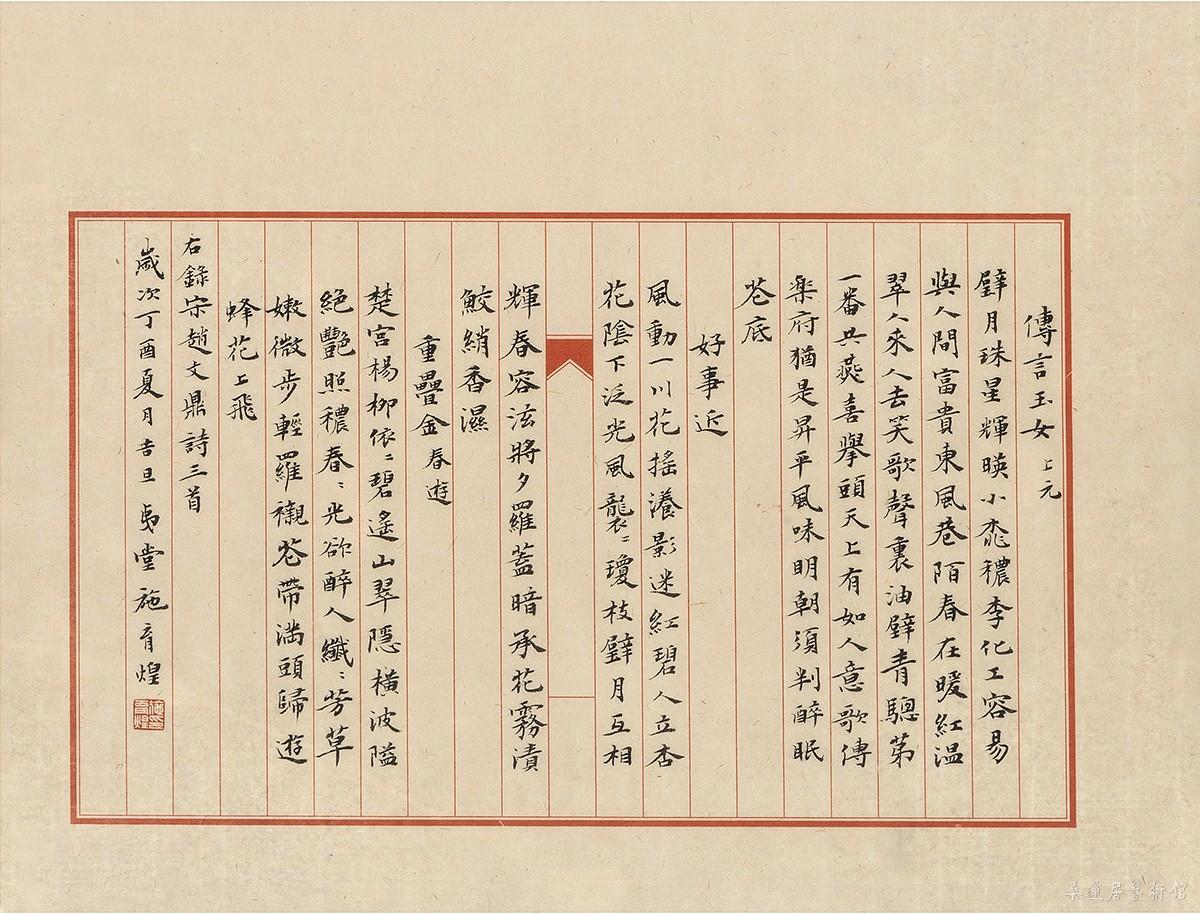 傳言玉女 上元
璧月珠星輝暎小桃穠李化工容易
與人間富貴東風巷陌春在暖紅温
翠人來人去笑歌聲裏油璧青驄第
一番共燕喜舉頭天上有如人意歌傳
樂府猶是昇平風味明朝須判醉眠
花底
好事近
風動一川花搖漾影迷紅碧人立杏
花陰下泛光風襲〻瓊枝璧月互相
輝春容泫將夕羅蓋暗承花霧漬
鮫綃香濕
重疊金 春遊
楚宮楊柳依〻碧遙山翠隱橫波隘
絕豔照穠春〻光欲醉人纖〻芳草
嫩微步輕羅襯花帶滿頭歸遊
蜂花上飛
右錄宋趙文鼎詩三首
歲次丁酉夏月吉旦 堂施育煌
居藝術館